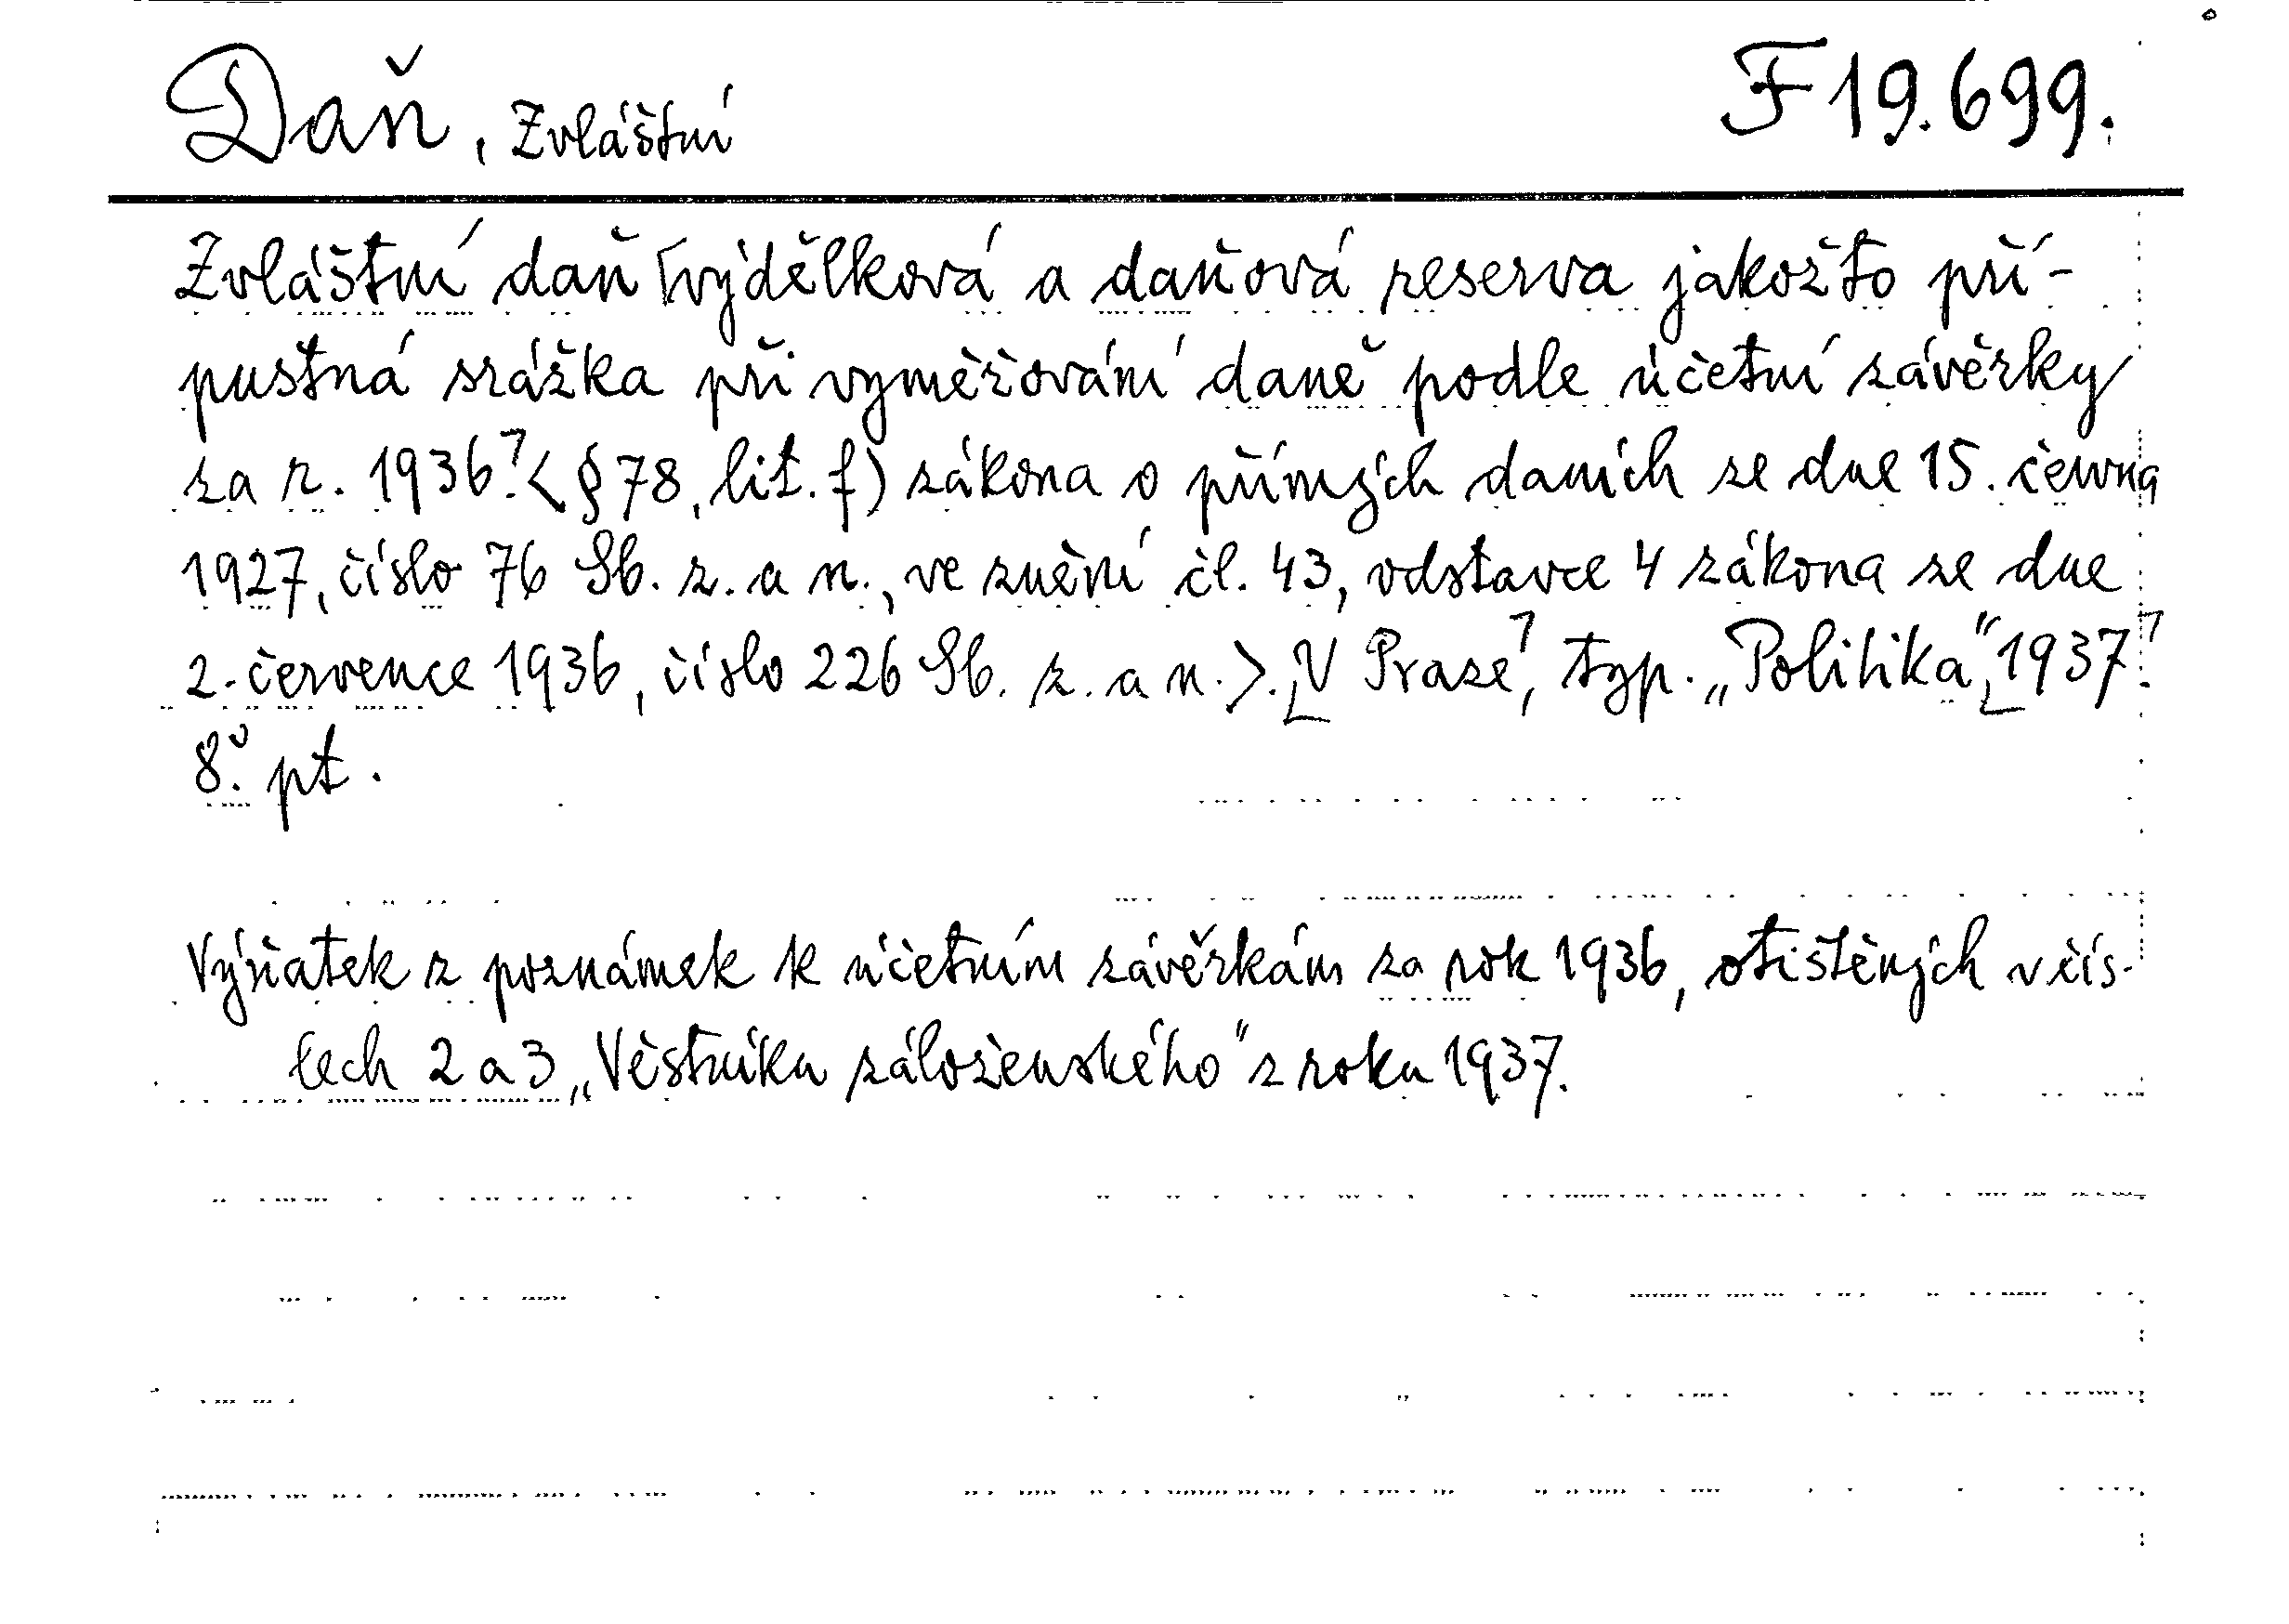 Daň, Zvláštní F 19.699.
Zvláštní daň [výdělková a daňová reserva jakožto pří-
pustná srážka při vyměřování daně podle účetní závěrky
za r. 1936]. < § 78, lit. f) zákona o přímých daních ze dne 15. června
1927, číslo 76 Sb. z. a n., ve znění čl. 43, odstavce 4 zákona ze dne
2. července 1936, číslo 226 Sb. z. a n. >. [V Praze], typ. „Politika“, [1937].
8°. pt.
Výňatek z poznámek k účetním závěrkám za rok 1936, otištěných v čís-
lech 2 a 3 „Věstníku záloženského“ z roku 1937.